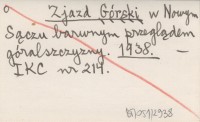 Zjazd Górski w Nowym
Sączu barwnym przeglądem
góralszczyzny. 1938. —
IKC nr 214.
BJ/051/1938